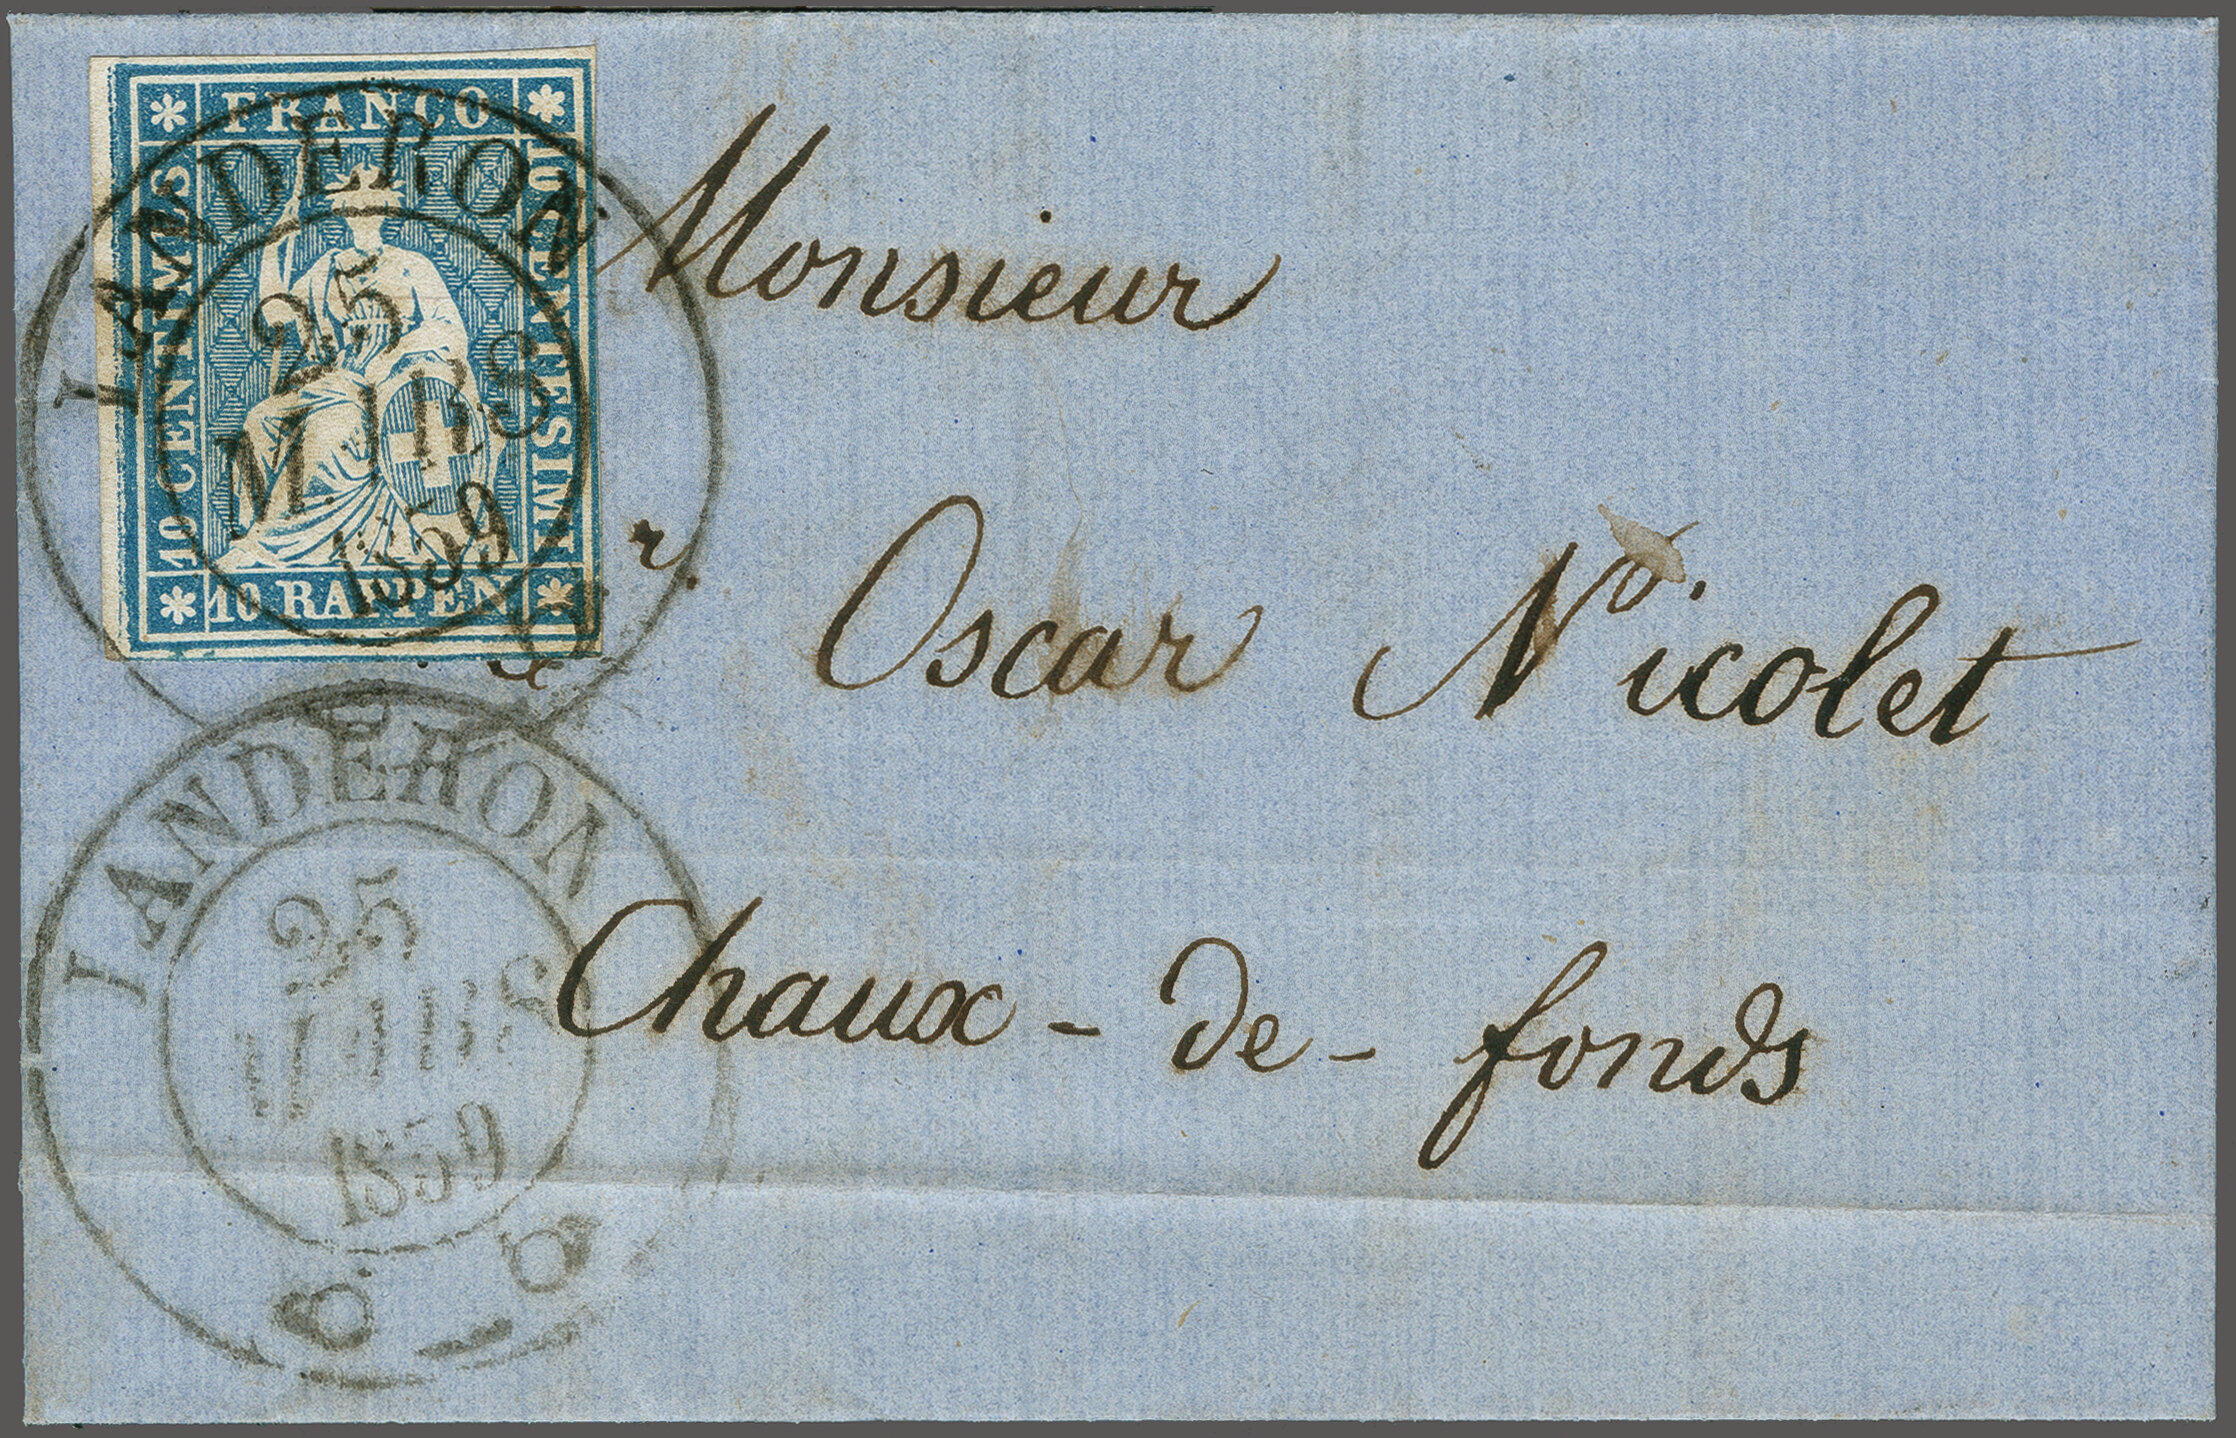 FRANCO
10 CENTIMES
10 CENTESIMI
10 RAPPEN
LANDERON
25
MARS
1859
Monsieur
Oscar Nicolet
Chaux-de-fonds
LANDERON
25
MARS
1859